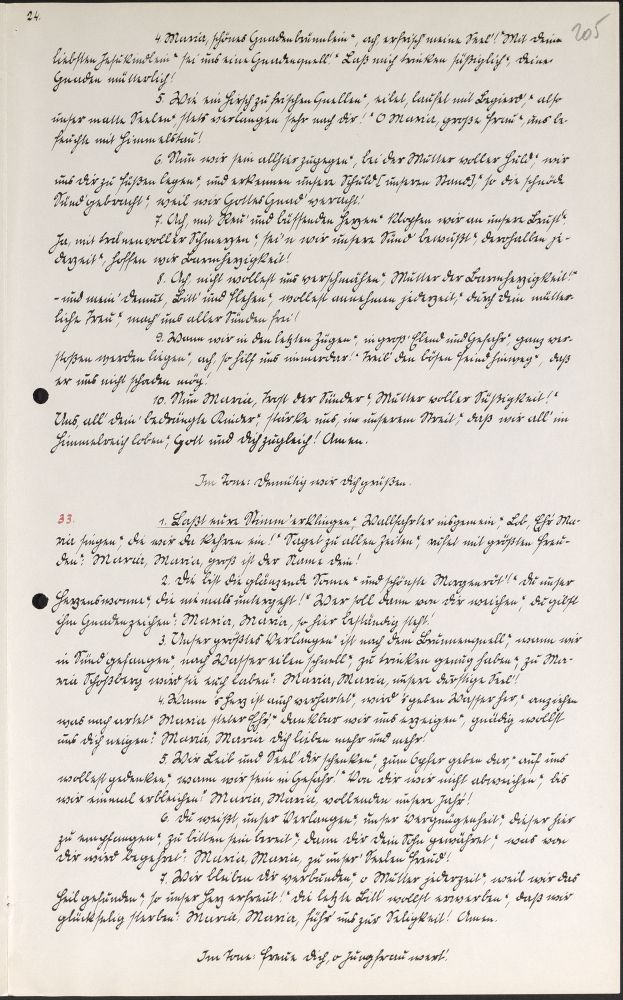 24.
205
4. Maria, schönes Gnadenbrünnlein", ach erfrisch meine Seel'!" Mit Dein
liebsten Jesukindlein" sei uns eine Gnadenquell'!" Laß mich trinken süßiglich", deine
Gnaden mütterlich!
5. Wie ein Hirsch zu frischen Quellen", eilet, laufet mit Begierd'," also
unser matte Seelen" stets verlangen sehr nach dir!" O Maria, große Frau", uns be-
feuchte mit Himmelstau!
6. Nun wir sein allhier zugegen", bei der Mutter voller Huld" wir
uns dir zu Füßen legen", und erkennen unsere Schuld [unseren Stand]," so die schnöde
Sünd' gebracht", weil wir Gottes Gnad' veracht!
7. Ach, mit Reu' und büssenden Herzen" klopfen wir an unsere Brust"
Ja, mit tränenvoller Schmerzen", sei'n wir unsere Sünd' bewußt", derohalben je-
derzeit", hoffen wir Barmherzigkeit!
8. Ach, nicht wollest uns verschmähen," Mutter der Barmherzigkeit!"
- und mein' Demut, Bitt' und Flehen", wollest annehmen jederzeit," durch dein mütter-
liche Treu", mach' uns aller Sünden frei!
9. Wann wir in den letzten Zügen", in groß' Elend und Gefahr", ganz ver-
stoßen werden liegen", ach, so hilf uns immerdar!" Treib' den bösen Feind hinweg", daß
er uns nicht schaden mög!
10. Nun Maria, Trost der Sünder" Mutter voller Süßigkeit!"
Uns, all' dein' bedrängte Kinder", stärke uns, in unserem Streit," daß wir all' im
Himmelreich loben", Gott und dich zugleich! Amen.
Im Tone: Demütig wir dich grüßen.
33. 1. Laßt eure Stimm' erklingen", Wallfahrter insgemein", Lob, Ehr' Ma-
ria singen", die wir da kehren ein!" Saget zu allen Zeiten", rufet mit größten Freu-
den": Maria, Maria, groß ist der Name dein!
2. Du bist die glänzende Sonne" und schönste Morgenröt'!" du unser
Herzenswonne", die niemals untergeht!" Wer soll dann von dir weichen", du gibst
ihm Gnadenzeichen": Maria, Maria, so hier beständig steht!
3. Unser größtes Verlangen" ist nach dem Brunnenquell", wann wir
in Sünd' gefangen", nach Wasser eilen schnell", zu trinken genug haben", zu Ma-
ria Schoßberg wird sie euch laben": Maria, Maria, unsere durstige Seel'!
4. Wann 's Herz ist auch verhartet", wird 's geben Wasser her," anziehen
was nach artet" Maria steter Ehr'," dankbar wir uns erzeigen", gnädig wollst
uns dich neigen": Maria, Maria dich lieben mehr und mehr!
5. Wir Leib und Seel' dir schenken", zum Opfer geben dar," auf uns
wollest gedenken", wann wir sein in Gefahr!" Von dir wir nicht abweichen", bis
wir einmal erbleichen" Maria, Maria, vollenden unsere Jahr'!
6. Du weißt, unser Verlangen", unser Vergnügenheit", dieser hier
zu empfangen", zu bitten sein bereit", dann dir dein Sohn gewähret", was von
dir wird begehret": Maria, Maria, zu unser' Seelen Freud'!
7. Wir bleiben dir verbunden", o Mutter jederzeit", weil wir das
Heil gefunden", so unser Herz erfreut!" die letzte Bitt' wollst erwerben", daß wir
glückselig sterben": Maria, Maria, führ' uns zur Seligkeit! Amen.
Im Tone: Freue dich, o Jungfrau wert!